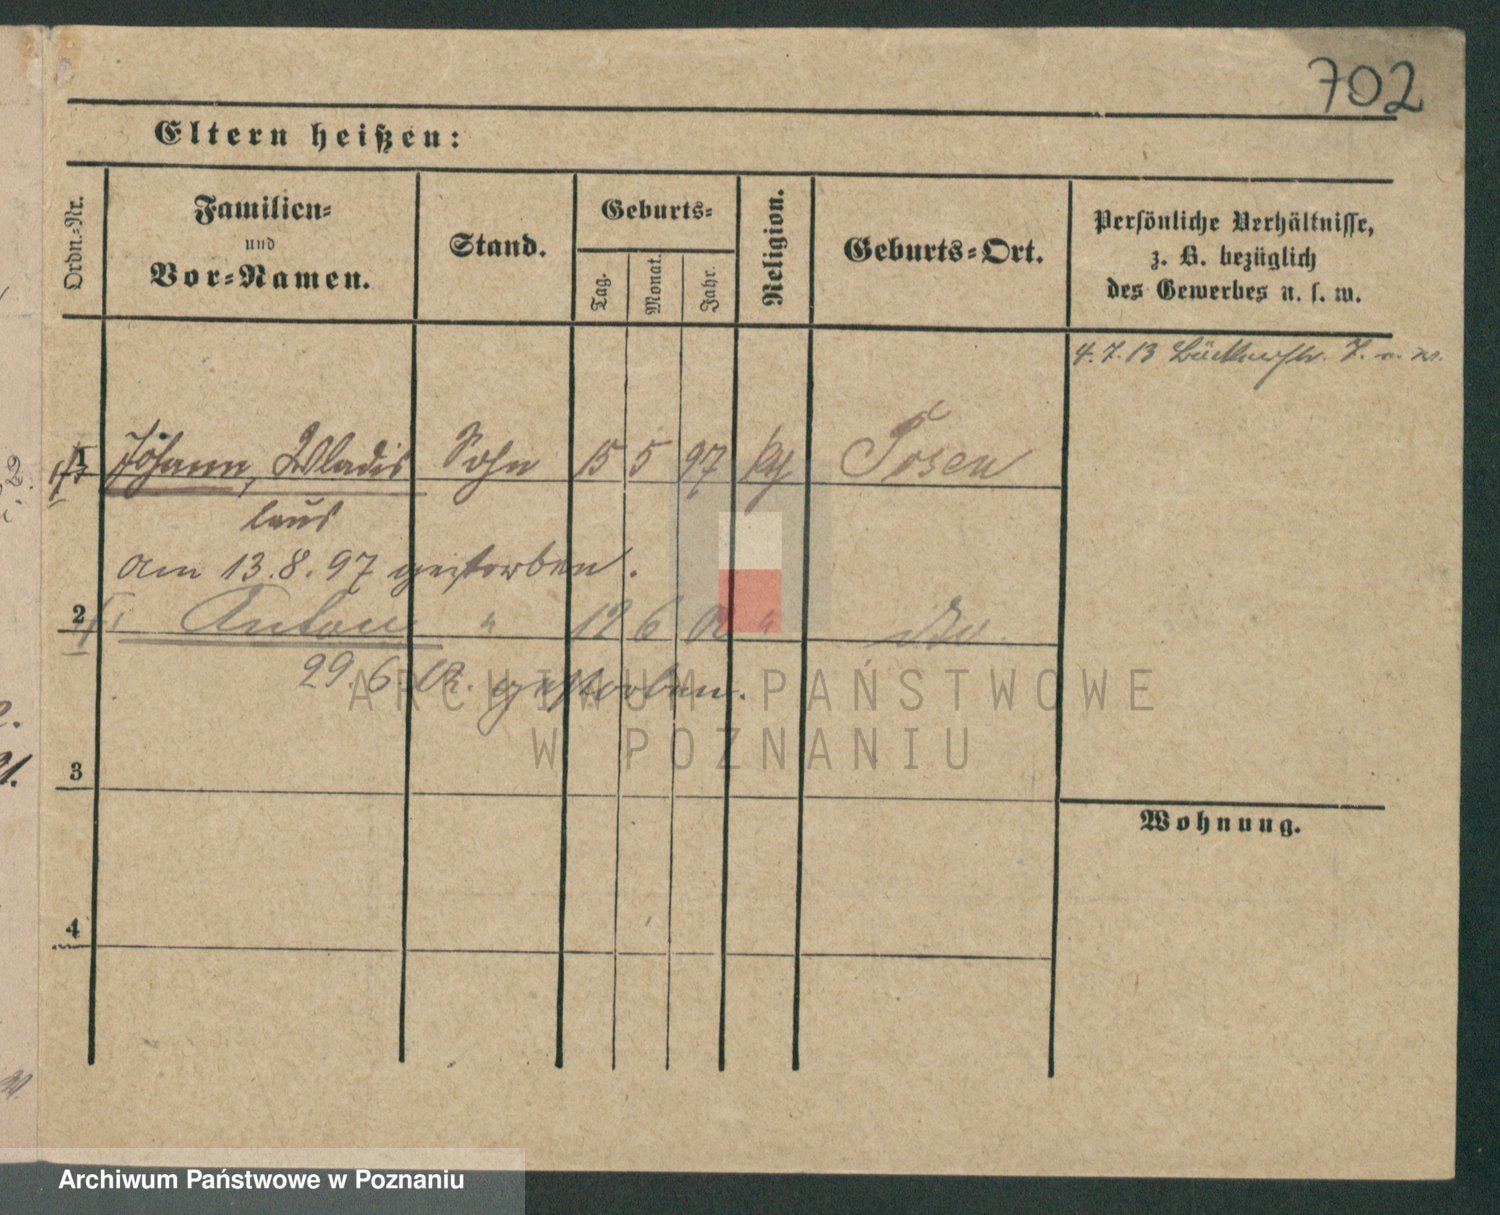 702
Eltern heißen:
Ordn.-Nr.
Familien-
und
Vor-Namen.
Stand.
Geburts-
Tag.
Monat.
Jahr.
Religion.
Geburts-Ort.
Persönliche Verhältnisse,
z. B. bezüglich
des Gewerbes u. s. w.
4. 7. 13
1 Johann, Wladis Sohn 15 5 97 Posen
laus
am 13. 8. 97 gestorben.
2 Anton " 12 6 "
29. 6. gestorben.
3
4
Wohnung.
ARCHIWUM PAŃSTWOWE
W POZNANIU
Archiwum Państwowe w Poznaniu